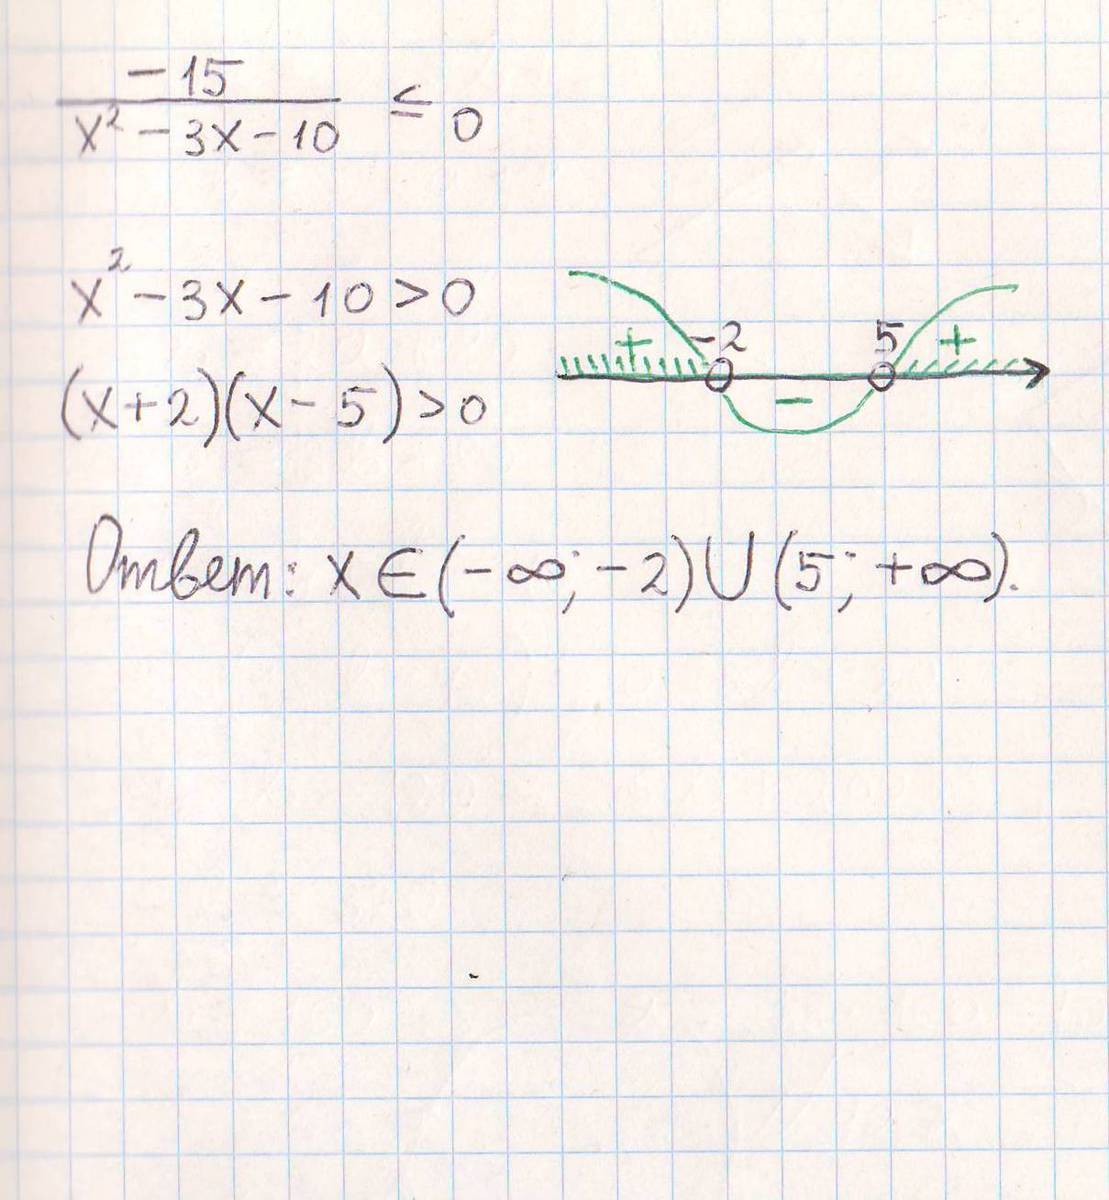 -15
x² - 3x - 10 ≤ 0
x² - 3x - 10 > 0
(x + 2)(x - 5) > 0
+ -2 - 5 +
Ответ: x ∈ (-∞; -2) ∪ (5; +∞).